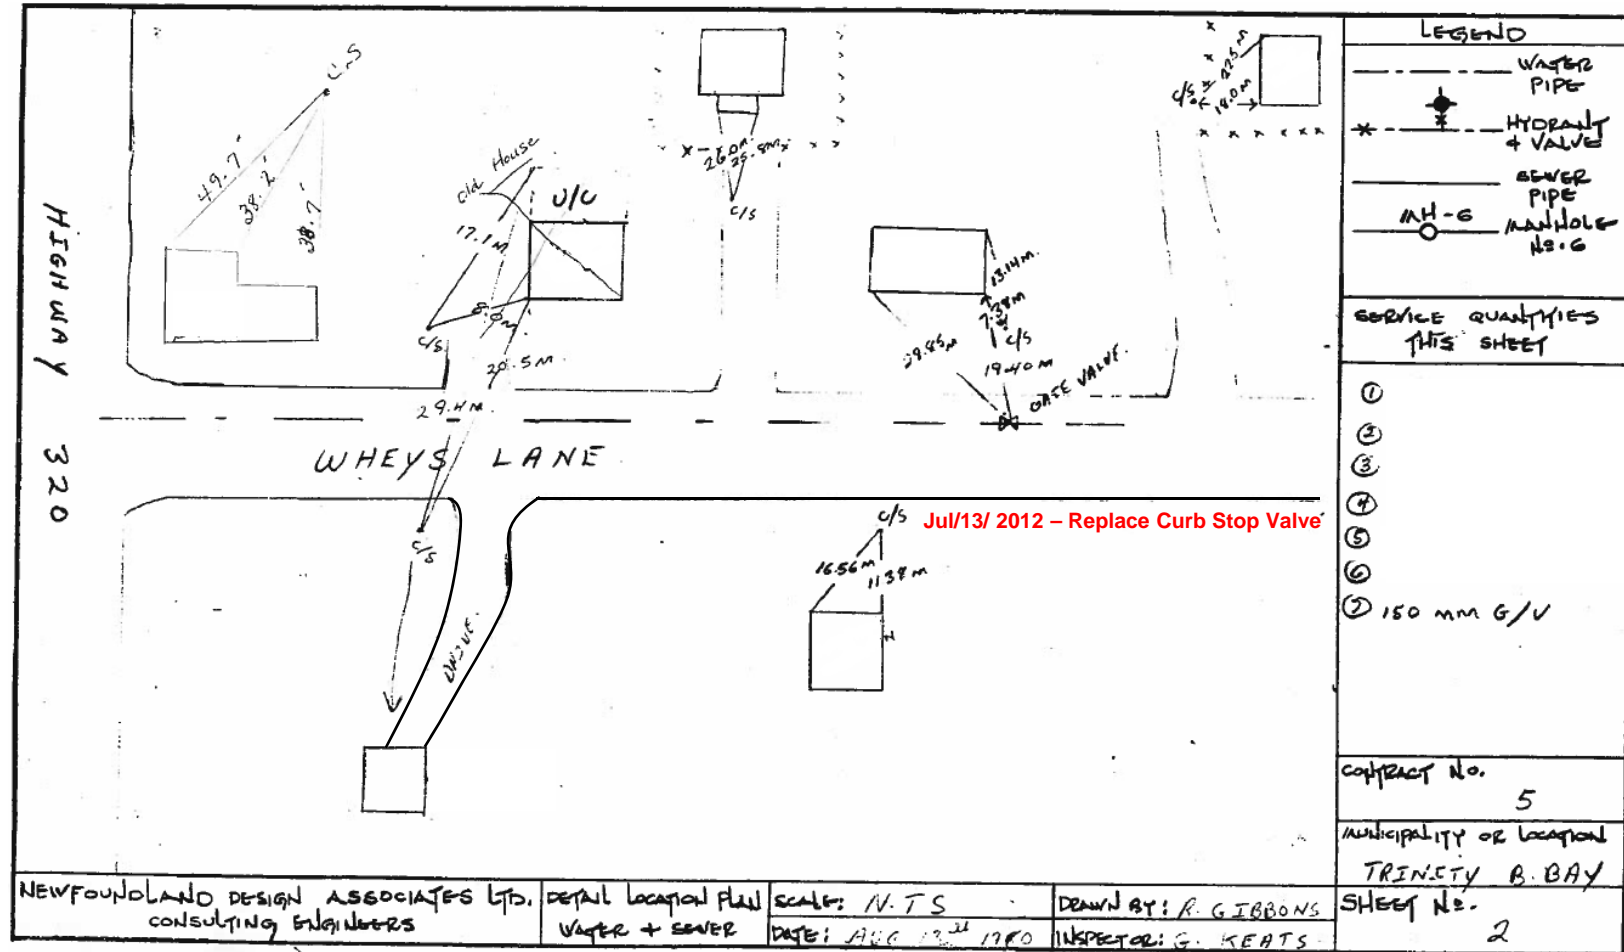 C.S
49.7'
38.2'
38.7'
HIGHWAY 320
Old House
U/C
17.1M
8.0M
C/S
20.5M.
29.4M.
26.0M.
25.8M.
C/S
C/S
22.5M
18.0M
13.14M.
7.38M
C/S
19.40M
GATE VALVE.
WHEYS LANE
C/S
DRIVE.
C/S
Jul/13/ 2012 – Replace Curb Stop Valve
16.56M
11.38M
LEGEND
WATER
PIPE
HYDRANT
& VALVE
SEWER
PIPE
MH-6
MANHOLE
No.6
SERVICE QUANTITIES
THIS SHEET
①
②
③
④
⑤
⑥
⑦ 150 mm G/V
CONTRACT No.
5
MUNICIPALITY OR LOCATION
TRINITY B. BAY
SHEET No.
2
NEWFOUNDLAND DESIGN ASSOCIATES LTD.
CONSULTING ENGINEERS
DETAIL LOCATION PLAN
WATER + SEWER
SCALE: N.T.S
DATE: AUG
DRAWN BY: R. GIBBONS
INSPECTOR: G. KEATS